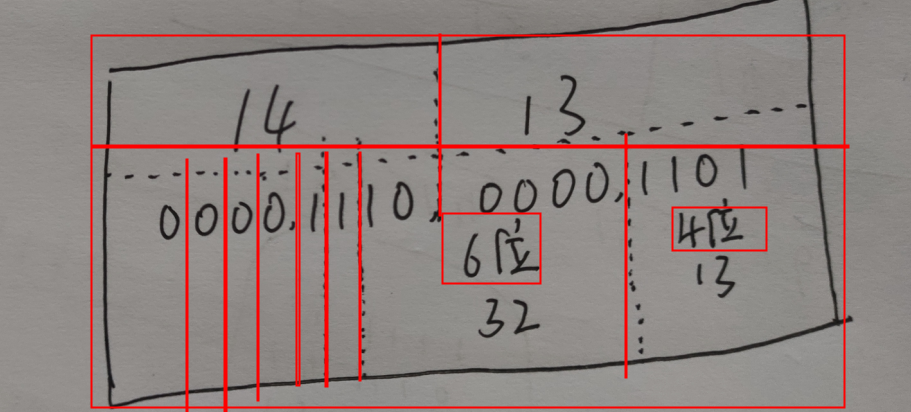 14 13
0000,1110, 0000,1101
6位 4位
32 13